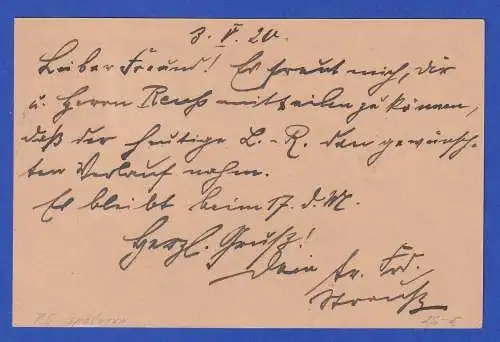 3. V. 20.
Lieber Freund! Es freut mich, dir
u. Herrn Reuss mitteilen zu können,
daß der heutige L.-R. den gewünsch-
ten Verlauf nahm.
Es bleibt beim 17. d. M.
Herzl. Gruß!
Dein tr. Frd.